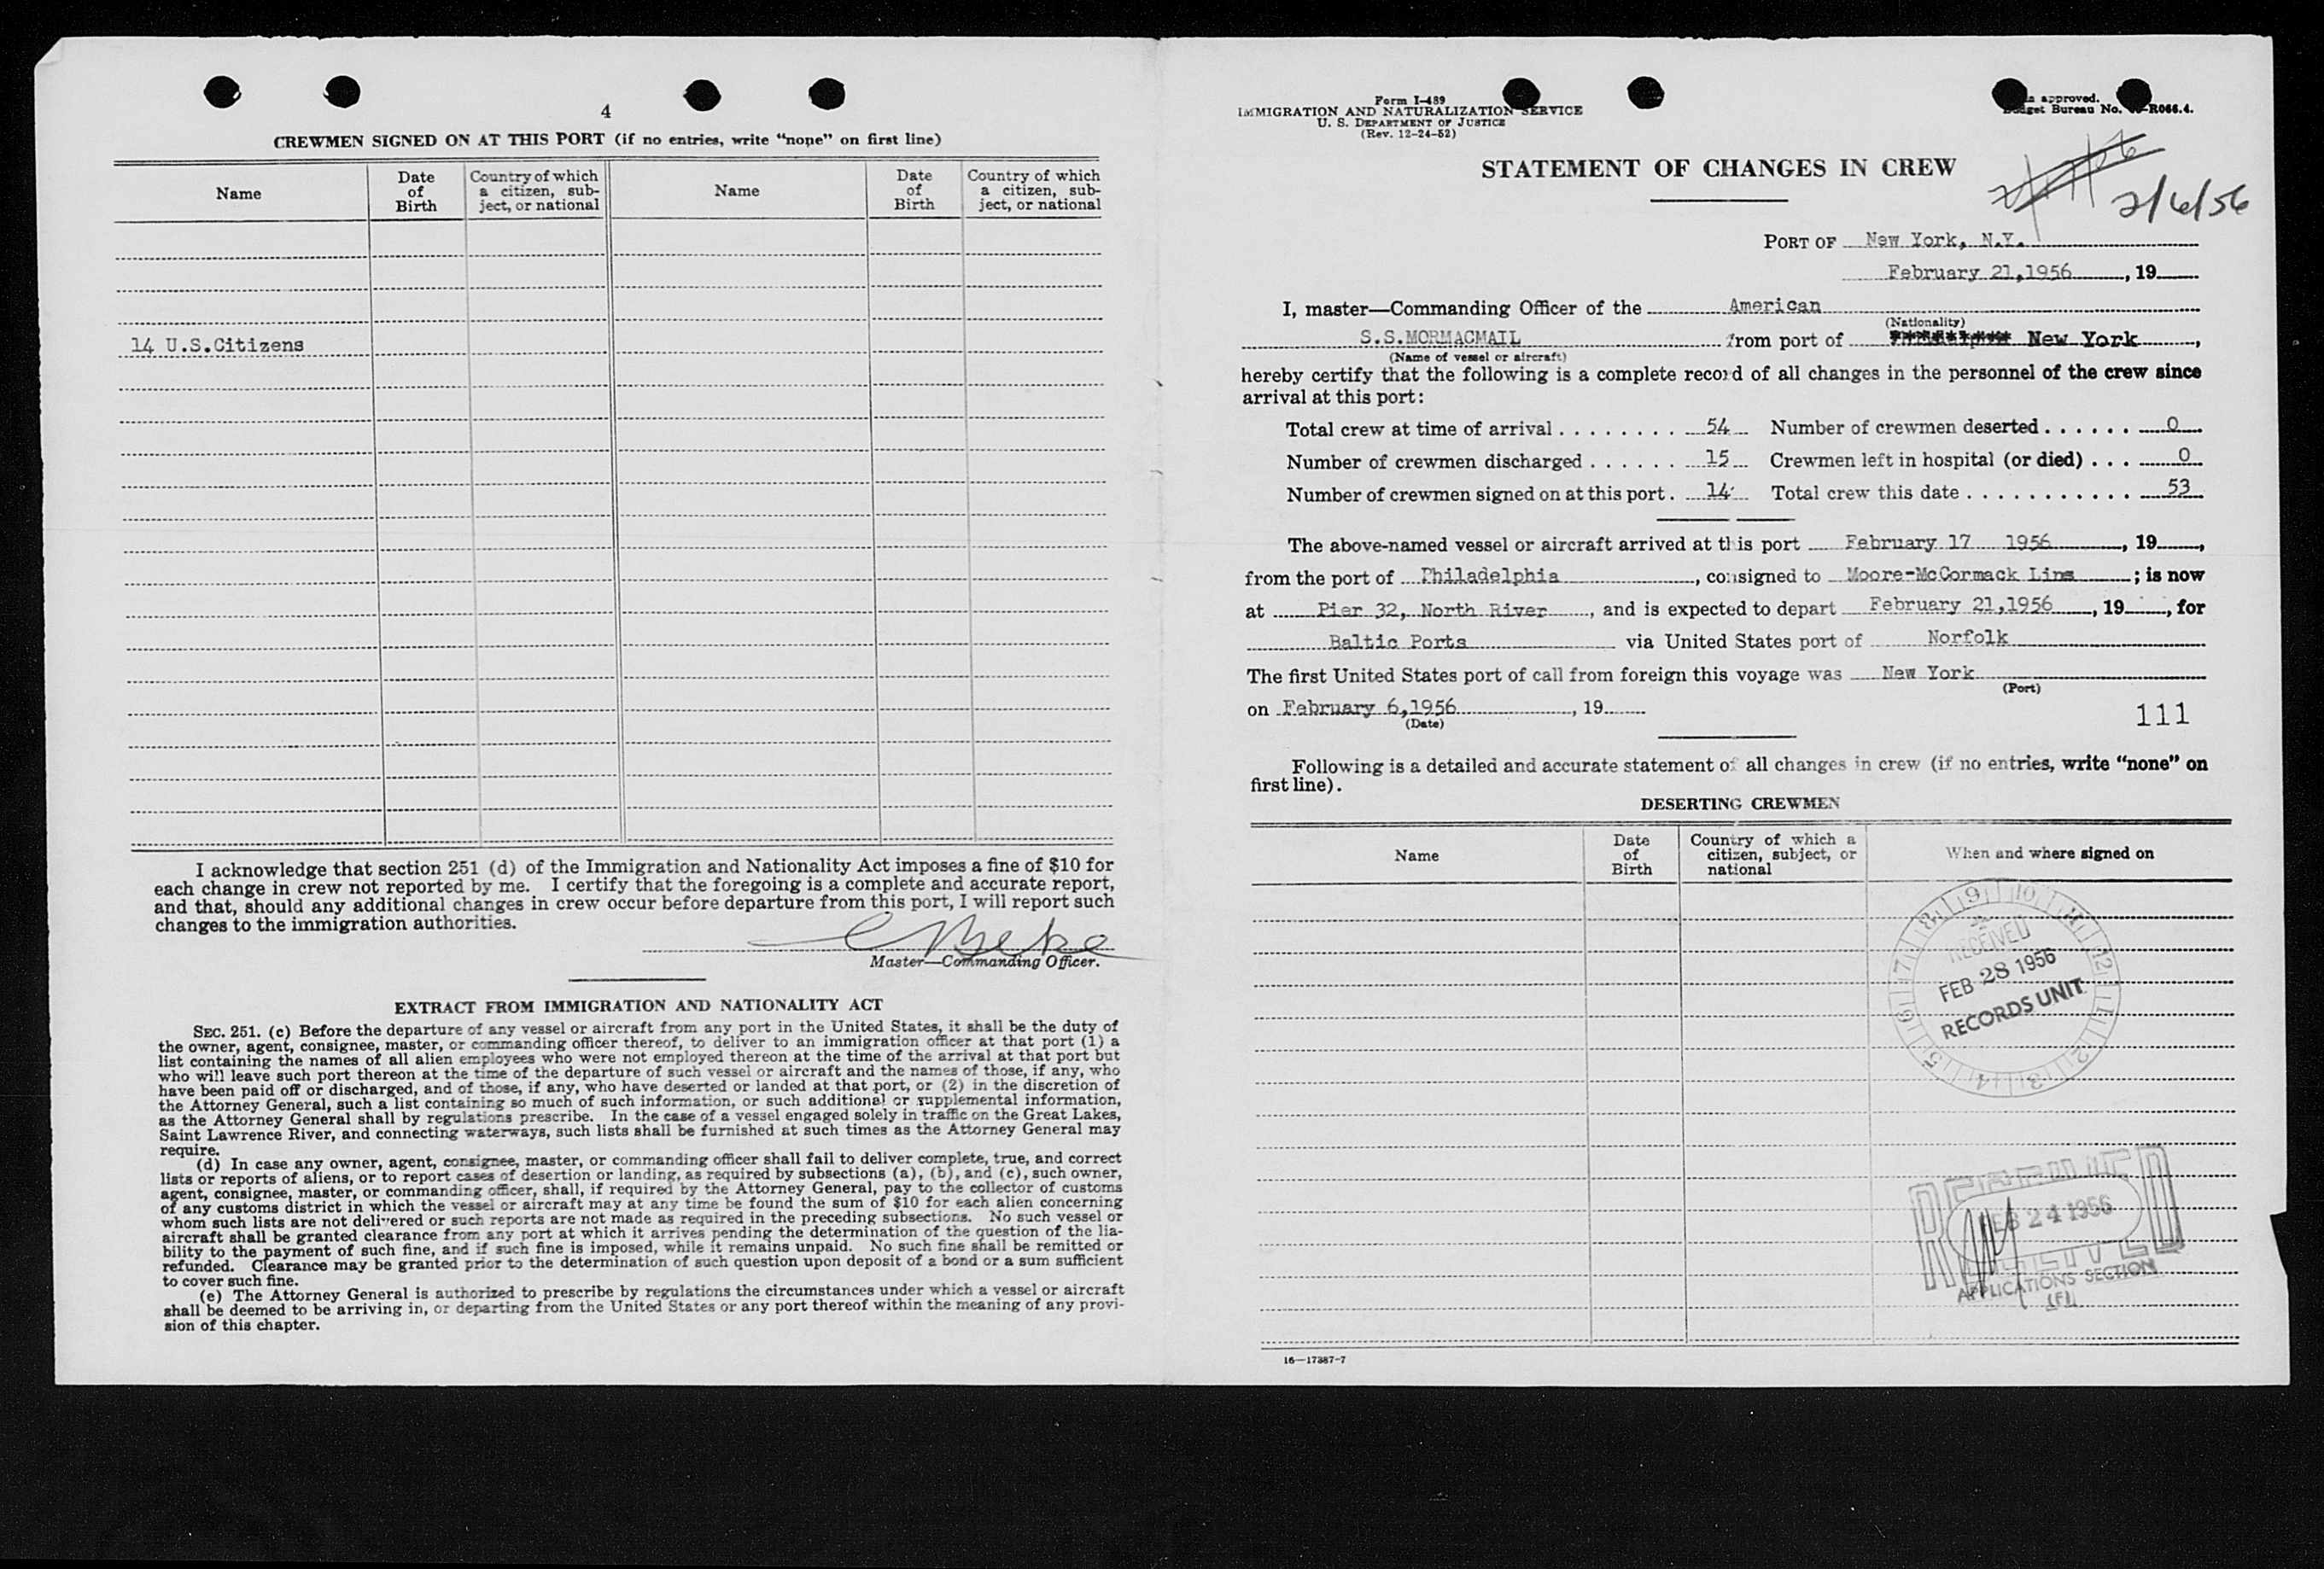 4
CREWMEN SIGNED ON AT THIS PORT (if no entries, write "none" on first line)
Name
Date of Birth
Country of which a citizen, sub-ject, or national
Name
Date of Birth
Country of which a citizen, sub-ject, or national
14 U.S.Citizens
I acknowledge that section 251 (d) of the Immigration and Nationality Act imposes a fine of $10 for
each change in crew not reported by me. I certify that the foregoing is a complete and accurate report,
and that, should any additional changes in crew occur before departure from this port, I will report such
changes to the immigration authorities.
Master—Commanding Officer.
EXTRACT FROM IMMIGRATION AND NATIONALITY ACT
SEC. 251. (c) Before the departure of any vessel or aircraft from any port in the United States, it shall be the duty of
the owner, agent, consignee, master, or commanding officer thereof, to deliver to an immigration officer at that port (1) a
list containing the names of all alien employees who were not employed thereon at the time of the arrival at that port but
who will leave such port thereon at the time of the departure of such vessel or aircraft and the names of those, if any, who
have been paid off or discharged, and of those, if any, who have deserted or landed at that port, or (2) in the discretion of
the Attorney General, such a list containing so much of such information, or such additional or supplemental information,
as the Attorney General shall by regulations prescribe. In the case of a vessel engaged solely in traffic on the Great Lakes,
Saint Lawrence River, and connecting waterways, such lists shall be furnished at such times as the Attorney General may
require.
(d) In case any owner, agent, consignee, master, or commanding officer shall fail to deliver complete, true, and correct
lists or reports of aliens, or to report cases of desertion or landing, as required by subsections (a), (b), and (c), such owner,
agent, consignee, master, or commanding officer, shall, if required by the Attorney General, pay to the collector of customs
of any customs district in which the vessel or aircraft may at any time be found the sum of $10 for each alien concerning
whom such lists are not delivered or such reports are not made as required in the preceding subsections. No such vessel or
aircraft shall be granted clearance from any port at which it arrives pending the determination of the question of the lia-
bility to the payment of such fine, and if such fine is imposed, while it remains unpaid. No such fine shall be remitted or
refunded. Clearance may be granted prior to the determination of such question upon deposit of a bond or a sum sufficient
to cover such fine.
(e) The Attorney General is authorized to prescribe by regulations the circumstances under which a vessel or aircraft
shall be deemed to be arriving in, or departing from the United States or any port thereof within the meaning of any provi-
sion of this chapter.
Form I-489
IMMIGRATION AND NATURALIZATION SERVICE
U. S. DEPARTMENT OF JUSTICE
(Rev. 12-24-52)
approved.
Bureau No. -R066.4.
STATEMENT OF CHANGES IN CREW
2/6/56
PORT OF New York, N.Y.
February 21,1956, 19
I, master—Commanding Officer of the American
(Nationality)
S.S.MORMACMAIL from port of New York,
(Name of vessel or aircraft)
hereby certify that the following is a complete record of all changes in the personnel of the crew since
arrival at this port:
Total crew at time of arrival 54 Number of crewmen deserted 0
Number of crewmen discharged 15 Crewmen left in hospital (or died) 0
Number of crewmen signed on at this port 14 Total crew this date 53
The above-named vessel or aircraft arrived at this port February 17 1956, 19,
from the port of Philadelphia, consigned to Moore-McCormack Line; is now
at Pier 32, North River, and is expected to depart February 21,1956, 19, for
Baltic Ports via United States port of Norfolk
The first United States port of call from foreign this voyage was New York
(Port)
on February 6,1956, 19
(Date)
111
Following is a detailed and accurate statement of all changes in crew (if no entries, write "none" on
first line).
DESERTING CREWMEN
Name
Date of Birth
Country of which a citizen, subject, or national
When and where signed on
RECEIVED
FEB 28 1956
RECORDS UNIT
1 2 3 4 5 6 7 8 9 10 11 12
RECEIVED
FEB 24 1956
APPLICATIONS SECTION
16—17387-7